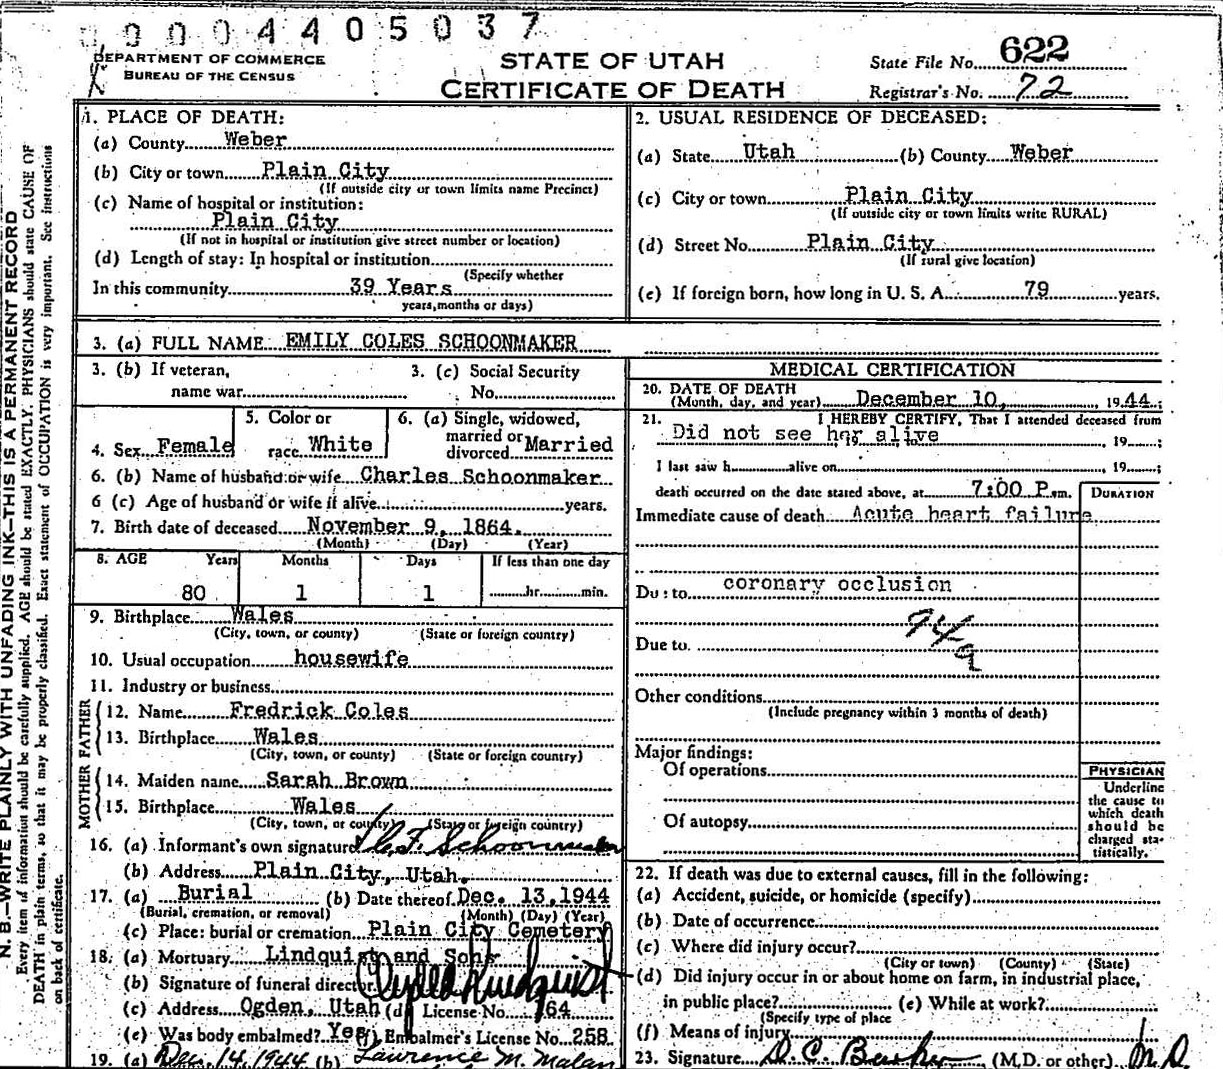 0004405037
DEPARTMENT OF COMMERCE
BUREAU OF THE CENSUS
STATE OF UTAH
CERTIFICATE OF DEATH
State File No. 622
Registrar's No. 72
N. B.—WRITE PLAINLY WITH UNFADING INK—THIS IS A PERMANENT RECORD
Every item of information should be carefully supplied. AGE should be stated EXACTLY. PHYSICIANS should state CAUSE OF
DEATH in plain terms, so that it may be properly classified. Exact statement of OCCUPATION is very important. See instructions
on back of certificate.
1. PLACE OF DEATH:
(a) County Weber
(b) City or town Plain City
(If outside city or town limits name Precinct)
(c) Name of hospital or institution:
Plain City
(If not in hospital or institution give street number or location)
(d) Length of stay: In hospital or institution
(Specify whether
In this community 39 Years
years, months or days)
2. USUAL RESIDENCE OF DECEASED:
(a) State Utah (b) County Weber
(c) City or town Plain City
(If outside city or town limits write RURAL)
(d) Street No. Plain City
(If rural give location)
(e) If foreign born, how long in U. S. A. 79 years.
3. (a) FULL NAME EMILY COLES SCHOONMAKER
3. (b) If veteran,
name war
3. (c) Social Security
No.
4. Sex Female
5. Color or
race White
6. (a) Single, widowed,
married or
divorced Married
6. (b) Name of husband or wife Charles Schoonmaker
6 (c) Age of husband or wife if alive years.
7. Birth date of deceased November 9, 1864.
(Month) (Day) (Year)
8. AGE Years Months Days If less than one day
80 1 1 hr. min.
9. Birthplace Wales
(City, town, or county) (State or foreign country)
10. Usual occupation housewife
11. Industry or business
FATHER
12. Name Fredrick Coles
13. Birthplace Wales
(City, town, or county) (State or foreign country)
MOTHER
14. Maiden name Sarah Brown
15. Birthplace Wales
(City, town, or county) (State or foreign country)
16. (a) Informant's own signature C. F. Schoonmaker
(b) Address Plain City, Utah.
17. (a) Burial (b) Date thereof Dec. 13, 1944
(Burial, cremation, or removal) (Month) (Day) (Year)
(c) Place: burial or cremation Plain City Cemetery
18. (a) Mortuary Lindquist and Sons
(b) Signature of funeral director Lindquist
(c) Address Ogden, Utah (d) License No. 64
(e) Was body embalmed? Yes (f) Embalmer's License No. 258
19. (a) Dec. 14, 1944 (b) Lawrence M. Malan
MEDICAL CERTIFICATION
20. DATE OF DEATH
(Month, day, and year) December 10, 1944;
21. I HEREBY CERTIFY, That I attended deceased from
Did not see her alive , 19 ;
I last saw h alive on , 19 ;
death occurred on the date stated above, at 7:00 P.m.
DURATION
Immediate cause of death Acute heart failure
Due to coronary occlusion
94/a
Due to
Other conditions
(Include pregnancy within 3 months of death)
Major findings:
Of operations
Of autopsy
PHYSICIAN
Underline
the cause to
which death
should be
charged sta-
tistically.
22. If death was due to external causes, fill in the following:
(a) Accident, suicide, or homicide (specify)
(b) Date of occurrence
(c) Where did injury occur?
(City or town) (County) (State)
(d) Did injury occur in or about home on farm, in industrial place,
in public place? (e) While at work?
(Specify type of place
(f) Means of injury
23. Signature D. C. (M.D. or other) M.D.